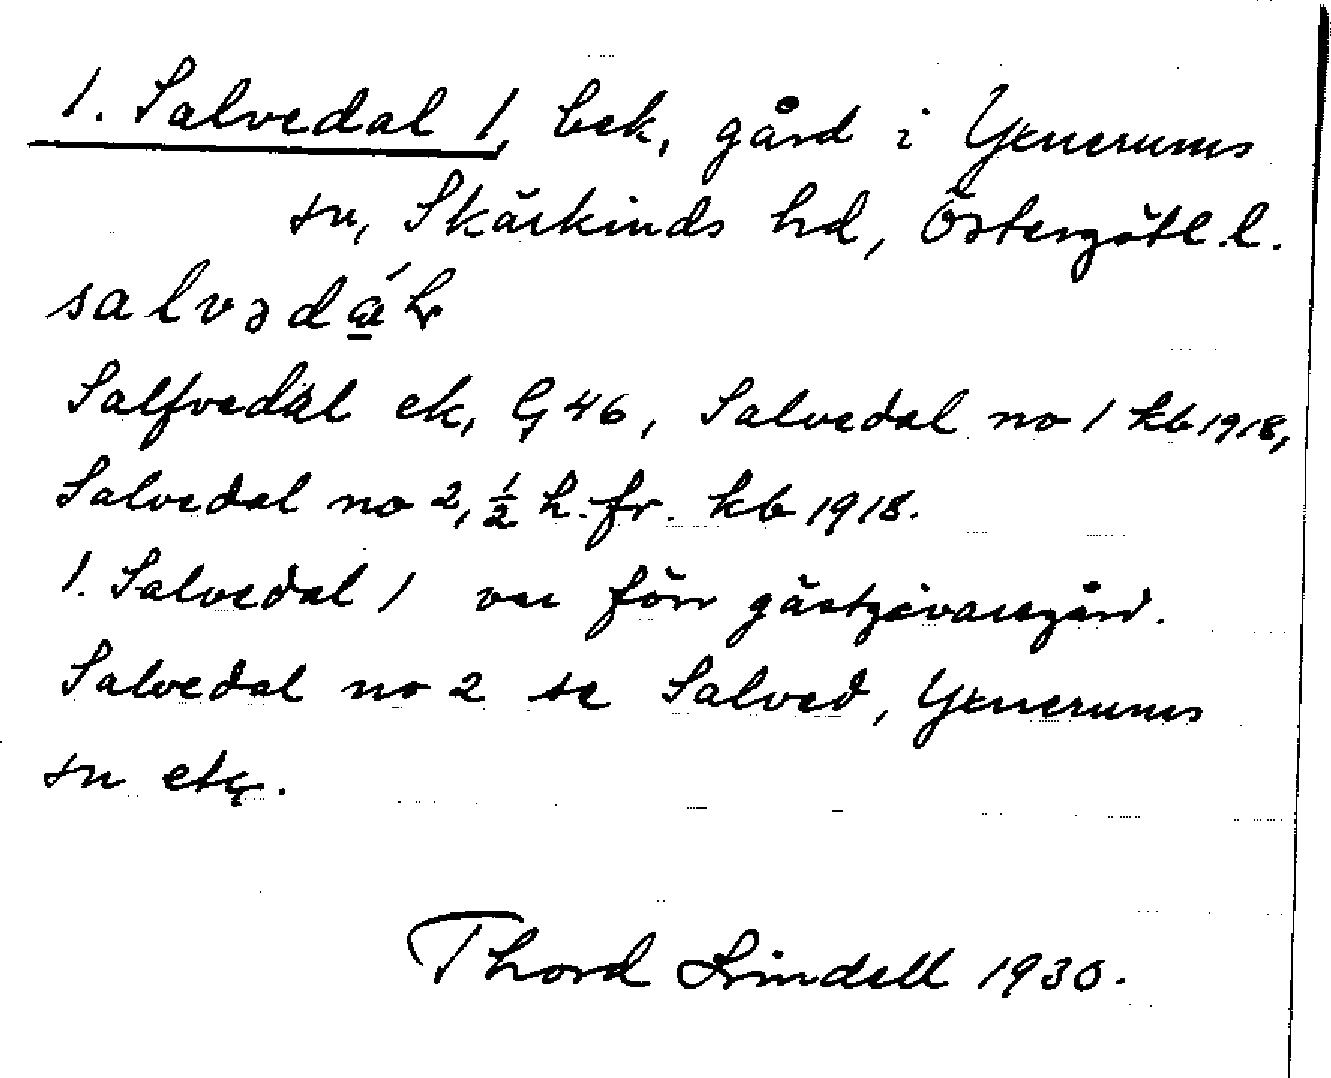 1. Salvedal 1, bek, gård i Yxnerums
sn, Skärkinds hd, Östergötl. l.
salvədá̱l
Salfvedal ek, G 46, Salvedal no 1 kb 1918,
Salvedal no 2, ½ h. fr. kb 1918.
1. Salvedal 1 var förr gästgivaregård.
Salvedal no 2 se Salved, Yxnerums
sn etc.
Thord Lindell 1930.